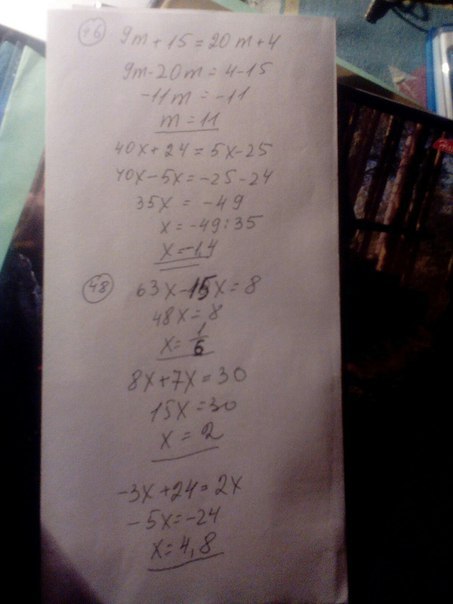 46 9m + 15 = 20m + 4
9m - 20m = 4 - 15
-11m = -11
m = 11
40x + 24 = 5x - 25
40x - 5x = -25 - 24
35x = -49
x = -49 : 35
x = -1,4
48 63x - 15x = 8
48x = 8
x = 1/6
8x + 7x = 30
15x = 30
x = 2
-3x + 24 = 2x
-5x = -24
x = 4,8